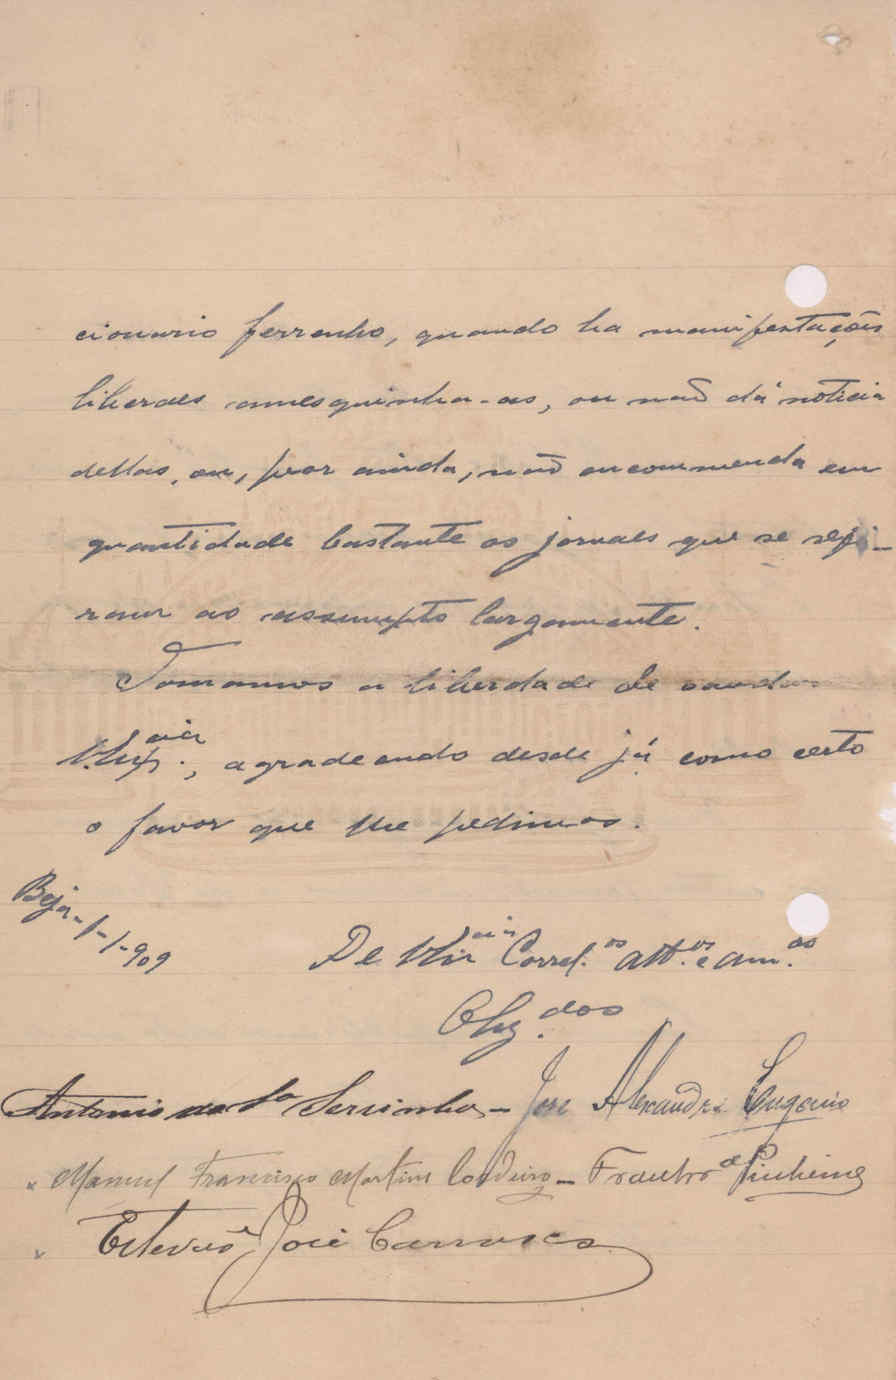 cionario ferrenho, quando ha manifestações
liberaes amesquinha-as, ou não dá noticia
dellas, ou, peor ainda, não encommenda em
quantidade bastante os jornaes que se refi-
ram ao assumpto largamente.
Tomamos a liberdade de saudar
agradecendo desde já como certo
o favor que lhe pedimos.
Beja - 1-1-909
De Correl.os att.os e am.os
Obg.dos
Antonio Serrinha - José Alexandre Eugenio
Manuel Francisco Martins Cordeiro - Pinheiro
Estevão José Carrasco